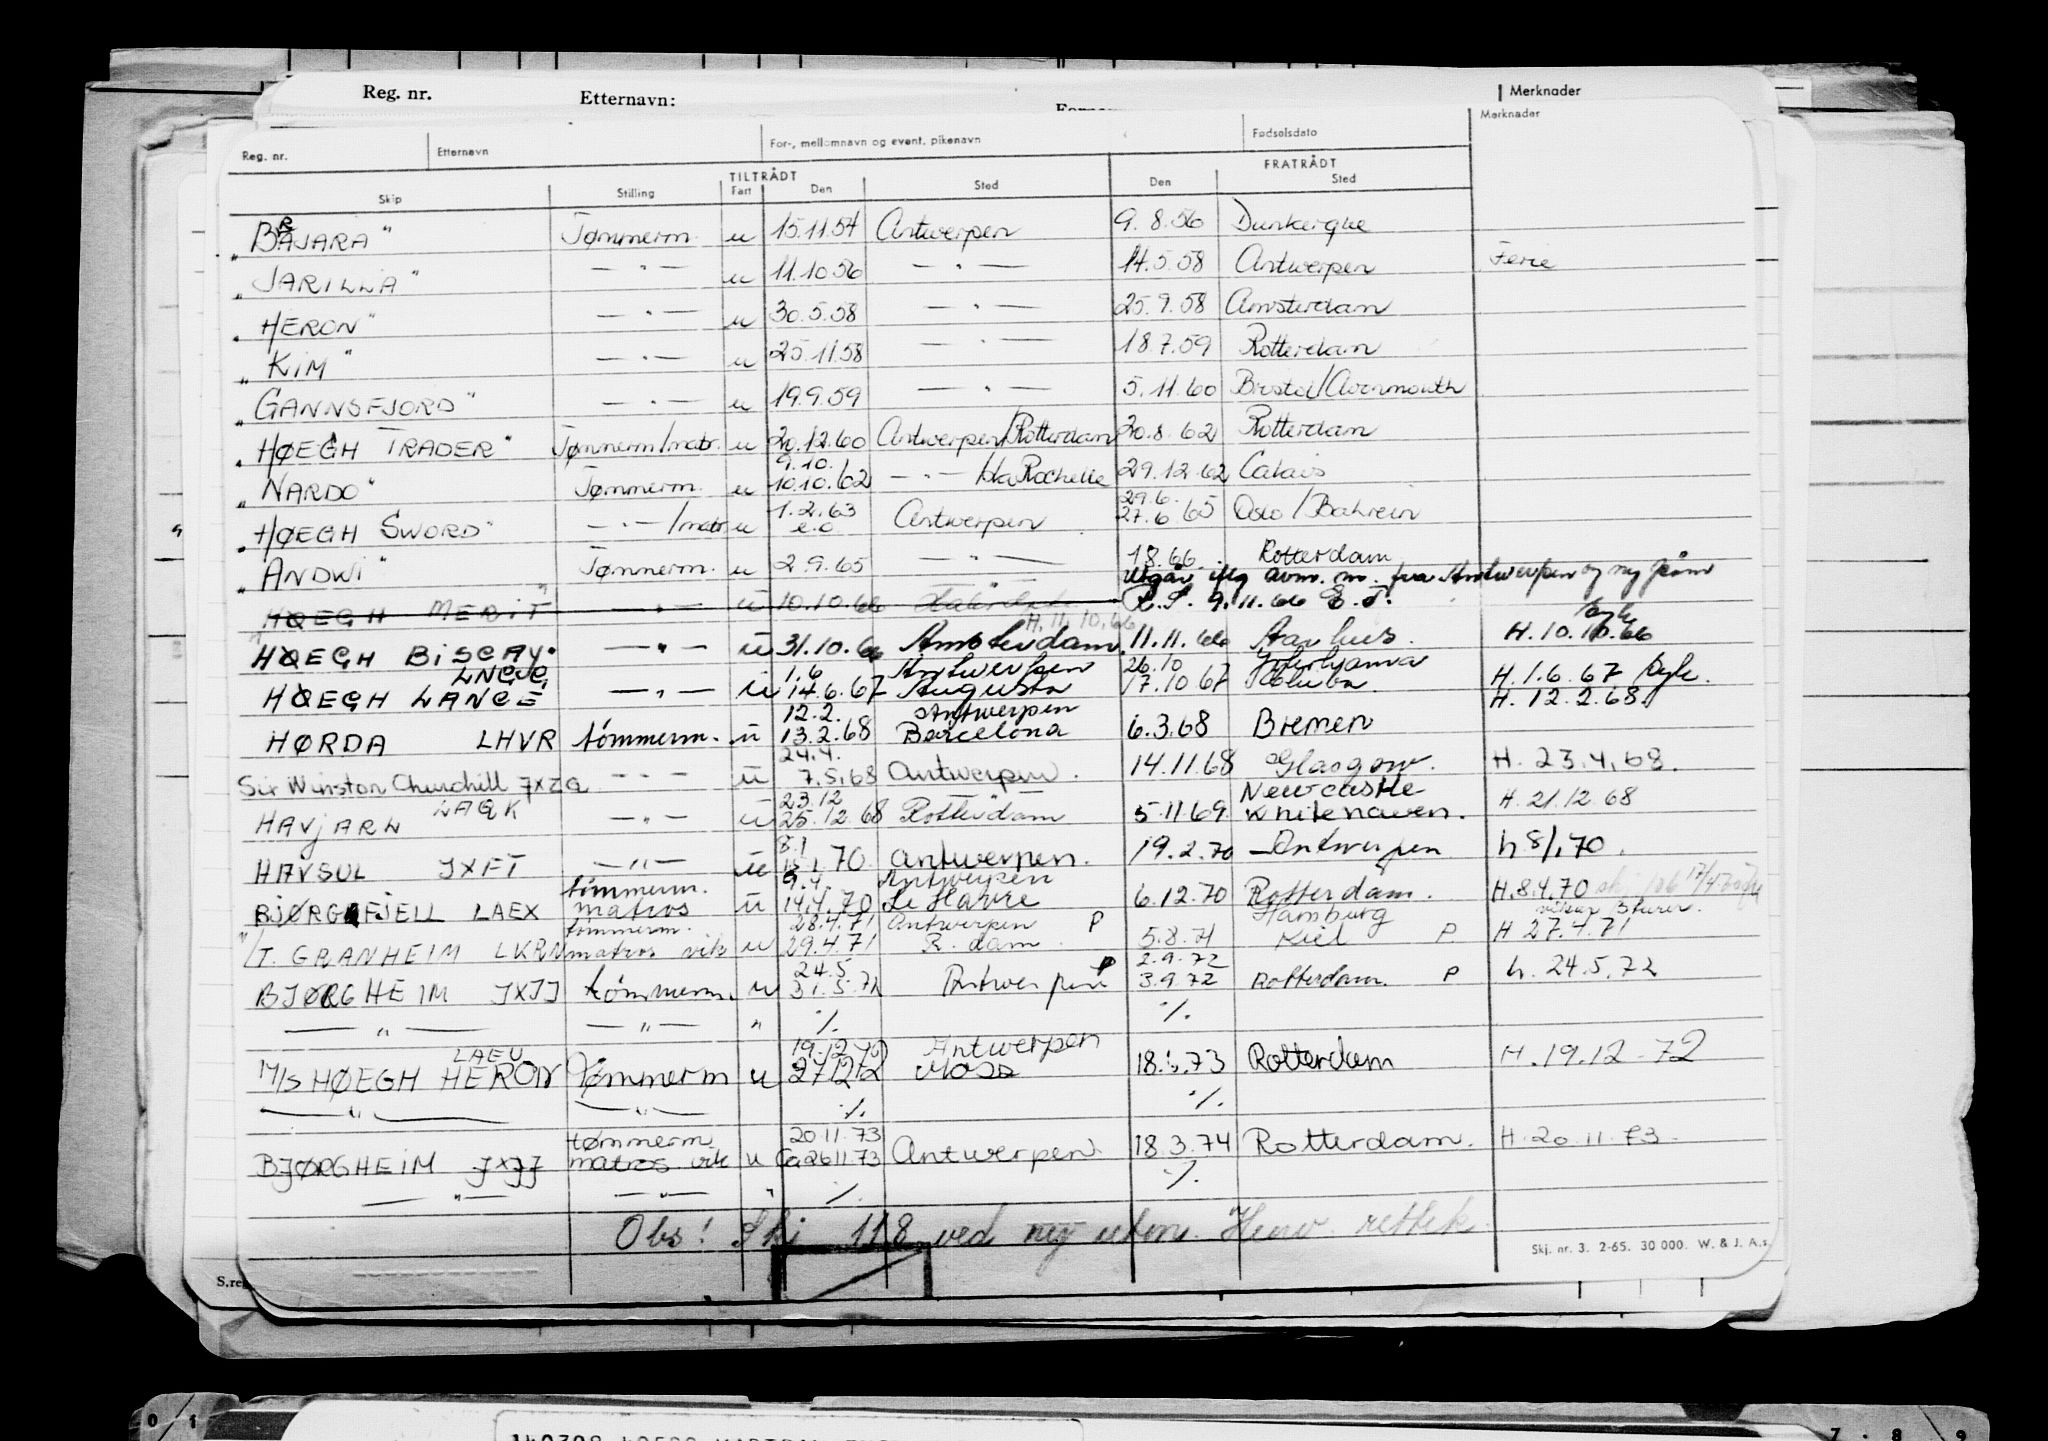 Reg. nr. Etternavn: Merknader
Reg. nr. Etternavn For-, mellomnavn og event. pikenavn Fødselsdato Merknader
TILTRÅDT FRATRÅDT
Skip Stilling Fart Den Sted Den Sted
"BAJARA" Tømmerm. u 15.11.54 Antwerpen 9.8.56 Dunkerque
"JARILLA" — " — u 11.10.56 — " — 14.5.58 Antwerpen Ferie
"HERON" — " — u 30.5.58 — " — 25.9.58 Amsterdam
"KIM" — " — u 25.11.58 — " — 18.7.59 Rotterdam
"GANNSFJORD" — " — u 19.9.59 — " — 5.11.60 Bristol/Avonmouth
"HØEGH TRADER" Tømmerm/matr. u 20.12.60 Antwerpen/Rotterdam 20.8.62 Rotterdam
9.10.
"NARDO" Tømmerm. u 10.10.62 — " — /La Rochelle 29.12.62 Calais
1.2.63 29.6.
"HØEGH SWORD" — " — /matr u e.o Antwerpen 27.6.65 Oslo/Bahrein
"ANDWI" Tømmerm. u 2.9.65 — " — 1.8.66 Rotterdam
Utgår iflg avm. m. fra Antwerpen og ny
HØEGH MERIT" — " — u 10.10.66 9.11.66
H. 11.10.66
HØEGH BISCAY" — " — u 31.10.66 Amsterdam 11.11.66 Aarhus. H. 10.10.66
LNCG 1.6 Antwerpen 26.10
HØEGH LANCE — " — u 14.6.67 Augusta 17.10.67 H. 1.6.67
12.2. Antwerpen H. 12.2.68.
HØRDA LHVR tømmerm. u 13.2.68 Barcelona 6.3.68 Bremen
24.4.
Sir Winston Churchill JXZQ — " — u 7.5.68 Antwerpen. 14.11.68 Glasgow. H. 23.4.68.
LAQK 23.12 Newcastle
HAVJARL — " — u 25.12.68 Rotterdam 5.11.69 Whitehaven. H. 21.12.68
8.1
HAVSUL JXFT — " — u 15.1.70 Antwerpen. 19.2.70 Antwerpen h 8/1 70.
tømmerm. 9.4. Antwerpen
BJØRGFJELL LAEX matros u 14.4.70 Le Havre 6.12.70 Rotterdam. H. 8.4.70
tømmerm. 28.4.71 Antwerpen P Hamburg
T. GRANHEIM LKRN matros vik u 29.4.71 R.dam. 5.8.71 Kiel P H 27.4.71
24.5 2.9.72
BJØRGHEIM JXJJ tømmerm. u 31.5.72 Antwerpen P 3.9.72 Rotterdam. P h. 24.5.72
— " — — " — " ./. ./.
LAEU 19.12.72 Antwerpen
M/S HØEGH HERON Tømmerm u 27.12.72 Moss 18.1.73 Rotterdam H. 19.12-72
— " — — " — ./. ./.
tømmerm 20.11.73
BJØRGHEIM JXJJ matros vik u Ca 26.11.73 Antwerpen 18.3.74 Rotterdam. H. 20.11.73.
— " — — " — " ./. ./.
Obs! Skj 118 ved ny utm.
Skj. nr. 3. 2-65. 30 000. W. & J. A.s.
0 1 7 8 9